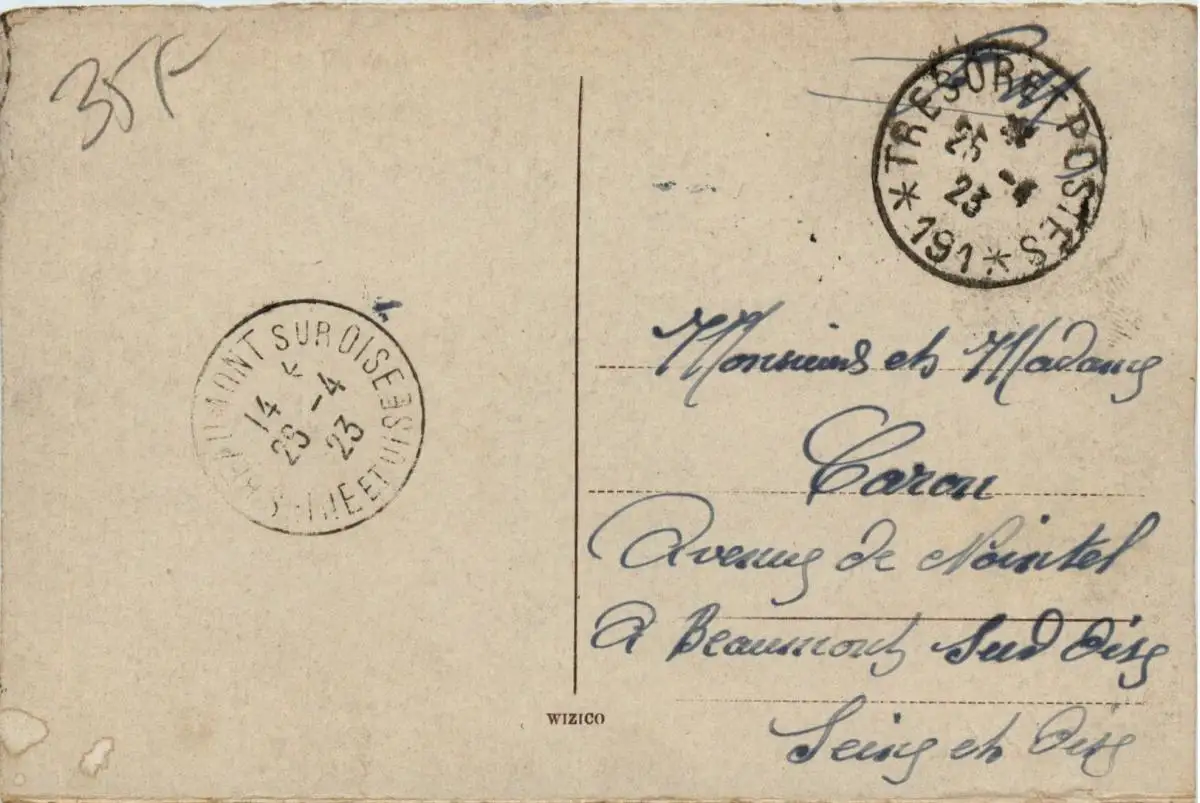 35F
F M
TRESOR ET POSTES
* 191 *
25 -4
23
BEAUMONT SUR OISE
SEINE ET OISE
14
26 -4
23
Monsieur et Madame
Caron
Avenue de Nointel
a Beaumont Sur Oise
WIZICO
Seine et Oise